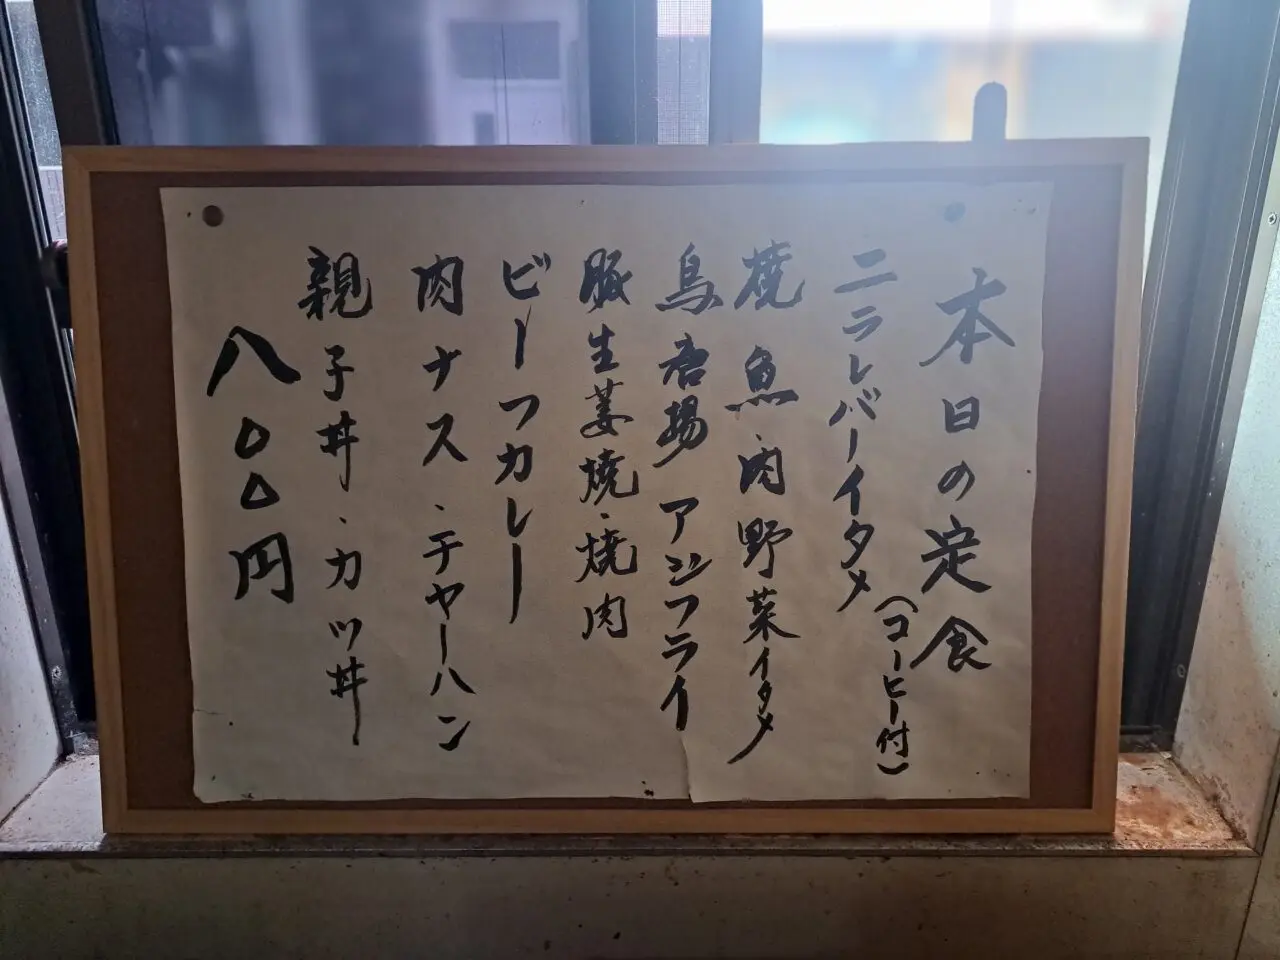 本日の定食
(コーヒー付)
ニラレバーイタメ
焼魚、肉野菜イタメ
鳥唐揚 アジフライ
豚生姜焼、焼肉
ビーフカレー
肉ナス、チャーハン
親子丼、カツ丼
八〇〇円